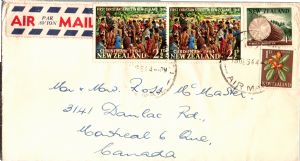 AIR PAR AVION MAIL
FIRST CHRISTIAN SERVICE IN NEW ZEALAND 1814
CHRISTMAS 1964
NEW ZEALAND 2½D
CHRISTMAS 1964
NEW ZEALAND
NEW ZEALAND
NEW ZEALAND
AIR MAIL
Mr & Mrs. Ross McMaster
3141 Dunlac Rd.,
Montreal 6 Que,
Canada